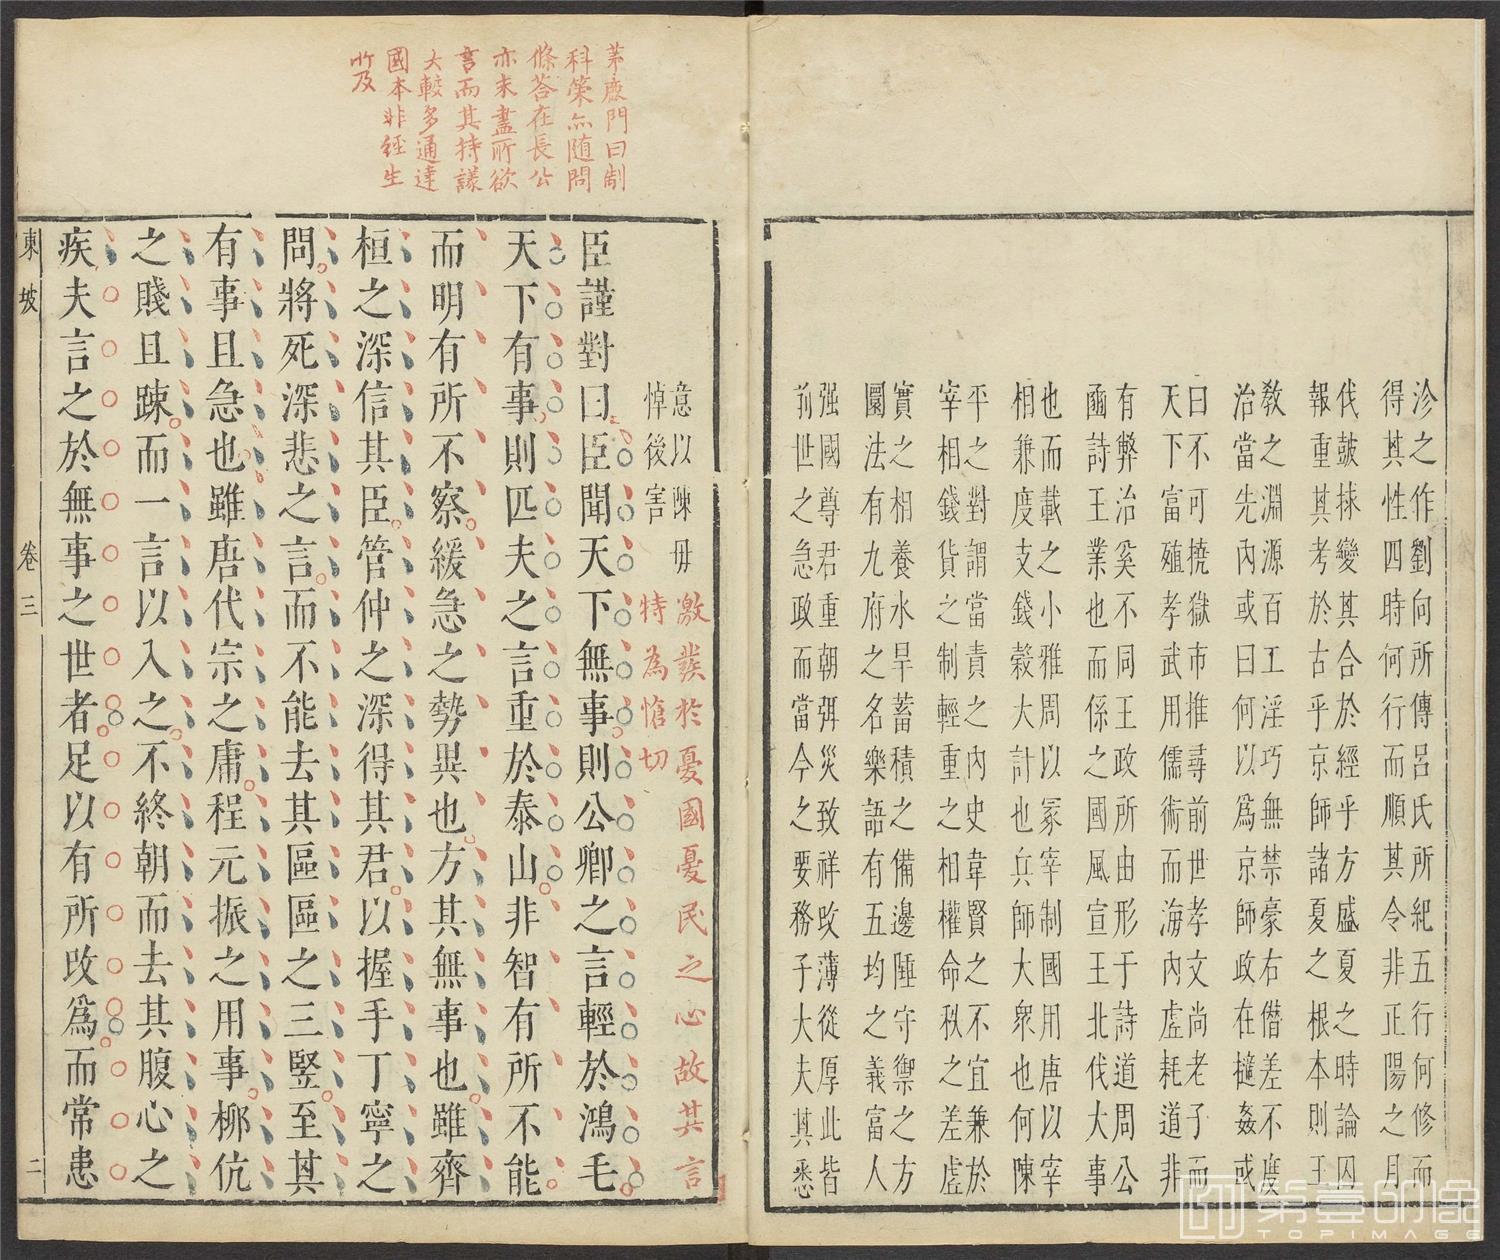 沴之作劉向所傳呂氏所紀五行何修而
得其性四時何行而順其令非正陽之月
伐鼓捄變其合於經乎方盛夏之時論囚
報重其考於古乎京師諸夏之根本則王
教之淵源百工淫巧無禁豪右僭差不度
治當先內或曰何以爲京師政在擿姦或
曰不可撓獄市推尋前世孝文尚老子而
天下富殖孝武用儒術而海內虛耗道非
有弊治奚不同王政所由形于詩道周公
豳詩王業也而係之國風宣王北伐大事
也而載之小雅周以冢宰制國用唐以宰
相兼度支錢穀大計也兵師大衆也何陳
平之對謂當責之內史韋賢之不宜兼於
宰相錢貨之制輕重之相權命秩之差虛
實之相養水旱蓄積之備邊陲守禦之方
圜法有九府之名樂語有五均之義富人
强國尊君重朝弭災致祥攺薄從厚此皆
前世之急政而當今之要務子大夫其悉
意以陳毋
悼後害
激發於憂國憂民之心故其言
特為愴切
臣謹對曰臣聞天下無事則公卿之言輕於鴻毛
天下有事則匹夫之言重於泰山非智有所不能
而明有所不察緩急之勢異也方其無事也雖齊
桓之深信其臣管仲之深得其君以握手丁寧之
問將死深悲之言而不能去其區區之三竪至其
有事且急也雖唐代宗之庸程元振之用事柳伉
之賤且踈而一言以入之不終朝而去其腹心之
疾夫言之於無事之世者足以有所攺爲而常患
茅鹿門曰制
科策亦随問
條荅在長公
亦未盡所欲
言而其持議
大較多通達
國本非經生
所及
東坡
卷三
二
第壹印象
TOPIMAGE